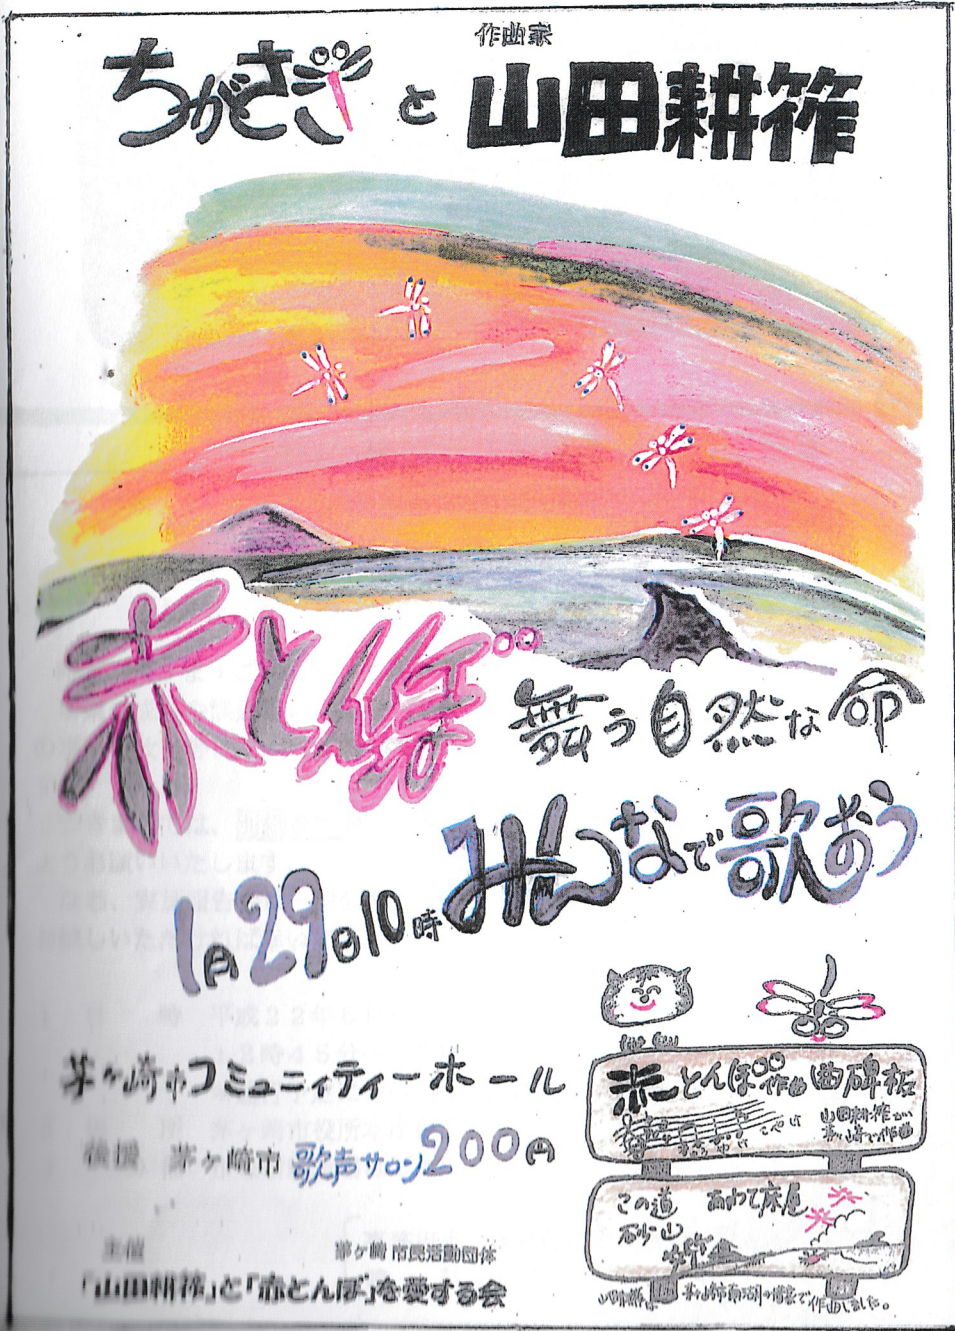 作曲家
ちがさきと山田耕筰
赤とんぼ
舞う自然な命
みんなで歌おう
1月29日10時
茅ヶ崎市コミュニィティーホール
後援 茅ヶ崎市 歌声サロン200円
主催 茅ヶ崎市民活動団体
「山田耕筰」と「赤とんぼ」を愛する会
赤とんぼ作曲 曲碑板
山田耕筰が
茅ヶ崎で作曲
この道 あわて床屋
砂山